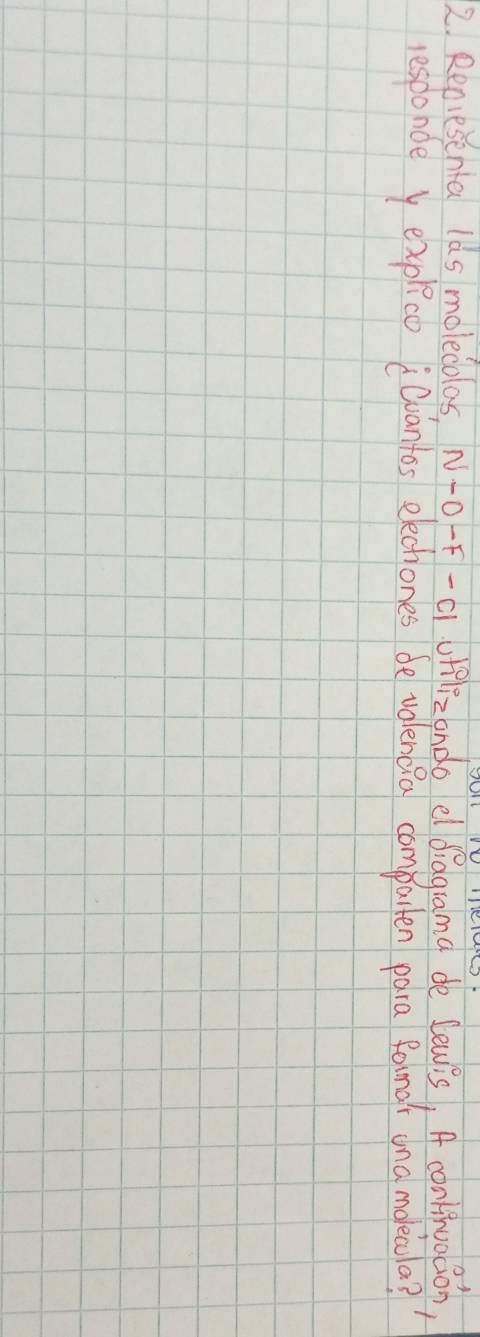 son no metales.
2. Representa las moléculas, N-O-F-Cl utilizando el diagrama de Lewis, A continuación,
responde y explico ¿Cuántos electrones de valencia comparten para formar una molécula?